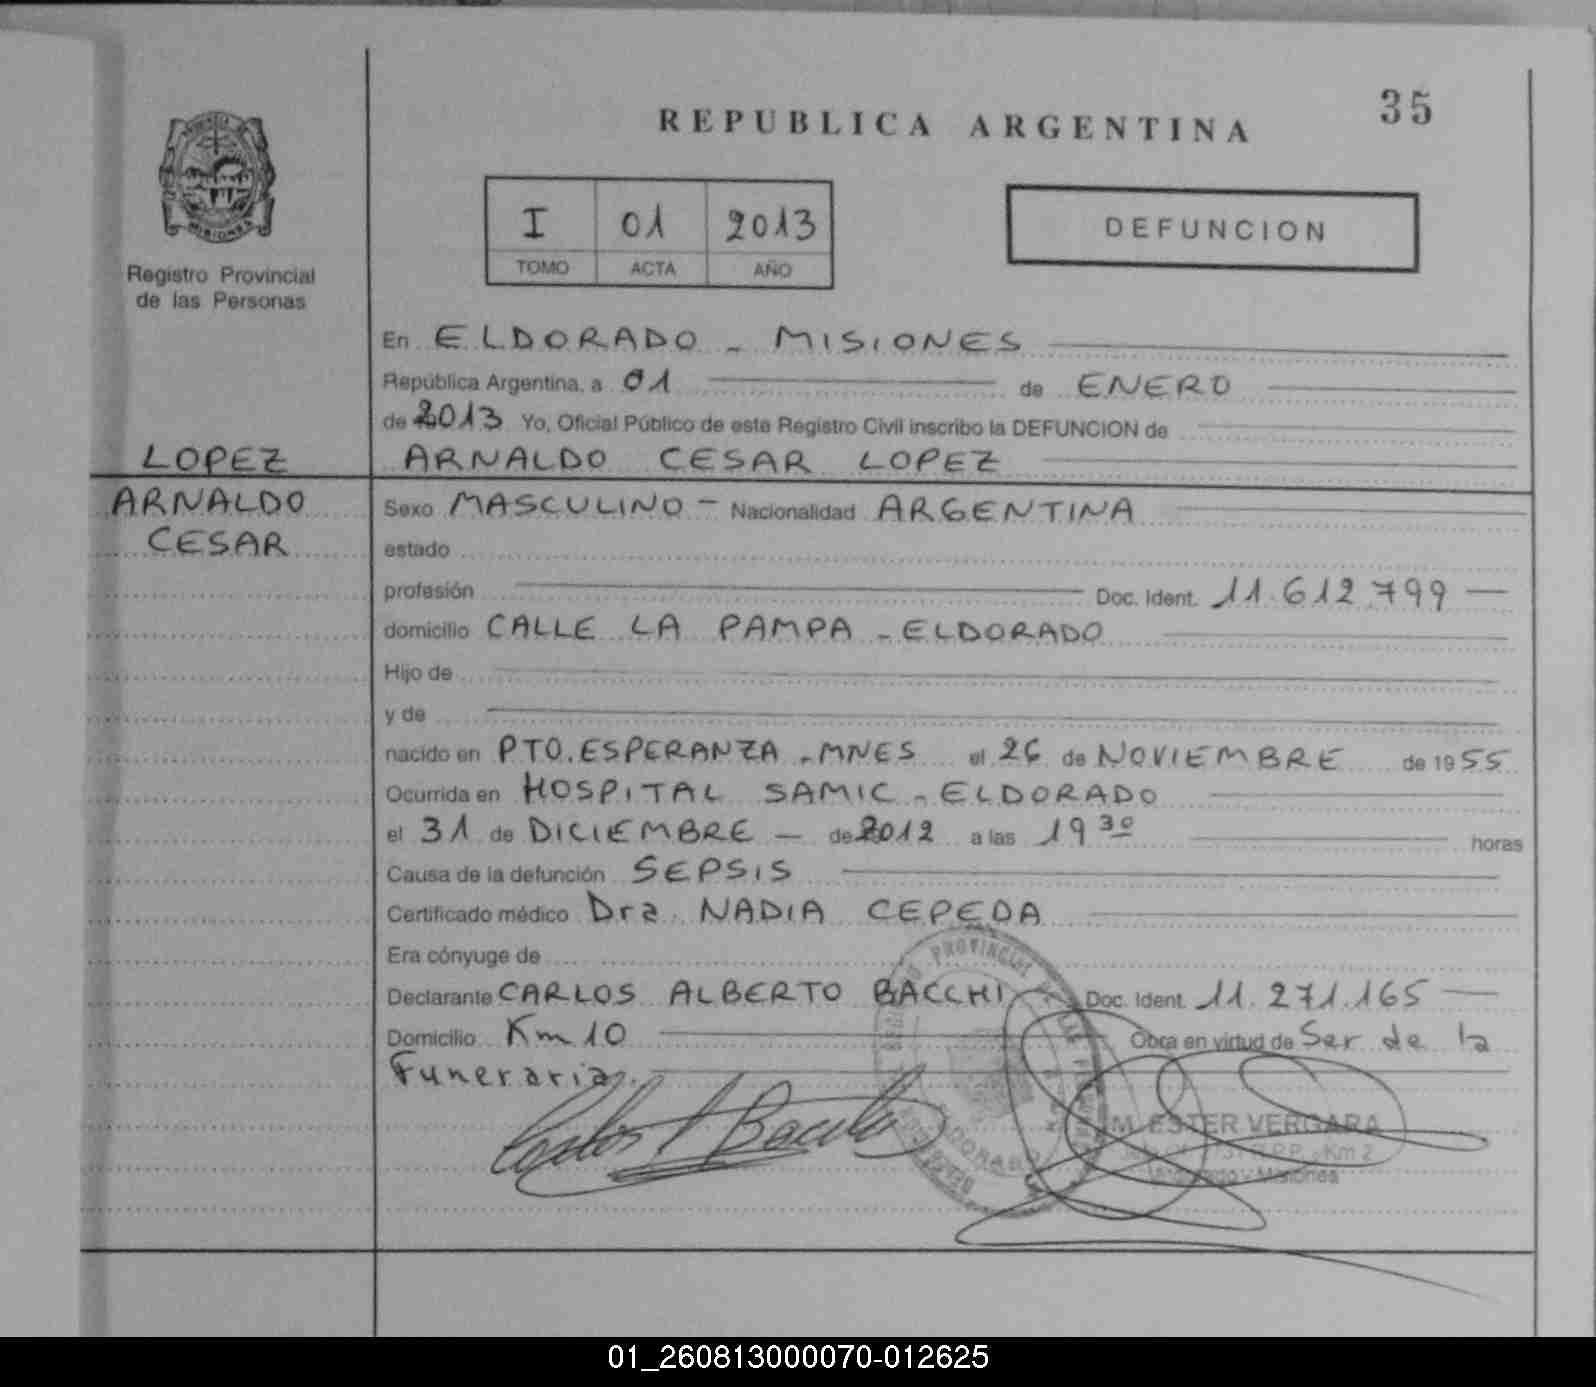 35
REPUBLICA ARGENTINA
I 01 2013
TOMO ACTA AÑO
DEFUNCION
MISIONES
Registro Provincial
de las Personas
En ELDORADO - MISIONES
República Argentina, a 01 de ENERO
de 2013 Yo, Oficial Público de este Registro Civil inscribo la DEFUNCION de
LOPEZ
ARNALDO CESAR LOPEZ
ARNALDO
CESAR
Sexo MASCULINO - Nacionalidad ARGENTINA
estado
profesión Doc. Ident. 11.612.799
domicilio CALLE LA PAMPA - ELDORADO
Hijo de
y de
nacido en PTO. ESPERANZA - MNES el 26 de NOVIEMBRE de 1955
Ocurrida en HOSPITAL SAMIC - ELDORADO
el 31 de DICIEMBRE - de 2012 a las 19 30 horas
Causa de la defunción SEPSIS
Certificado médico Dra. NADIA CEPEDA
Era cónyuge de
Declarante CARLOS ALBERTO BACCHI Doc. Ident. 11.271.165
Domicilio Km 10 Obra en virtud de Ser de la
Funeraria.
PROVINCIAL
ELDORADO
M. ESTER VERGARA
Km 2
Misiones
01_260813000070-012625